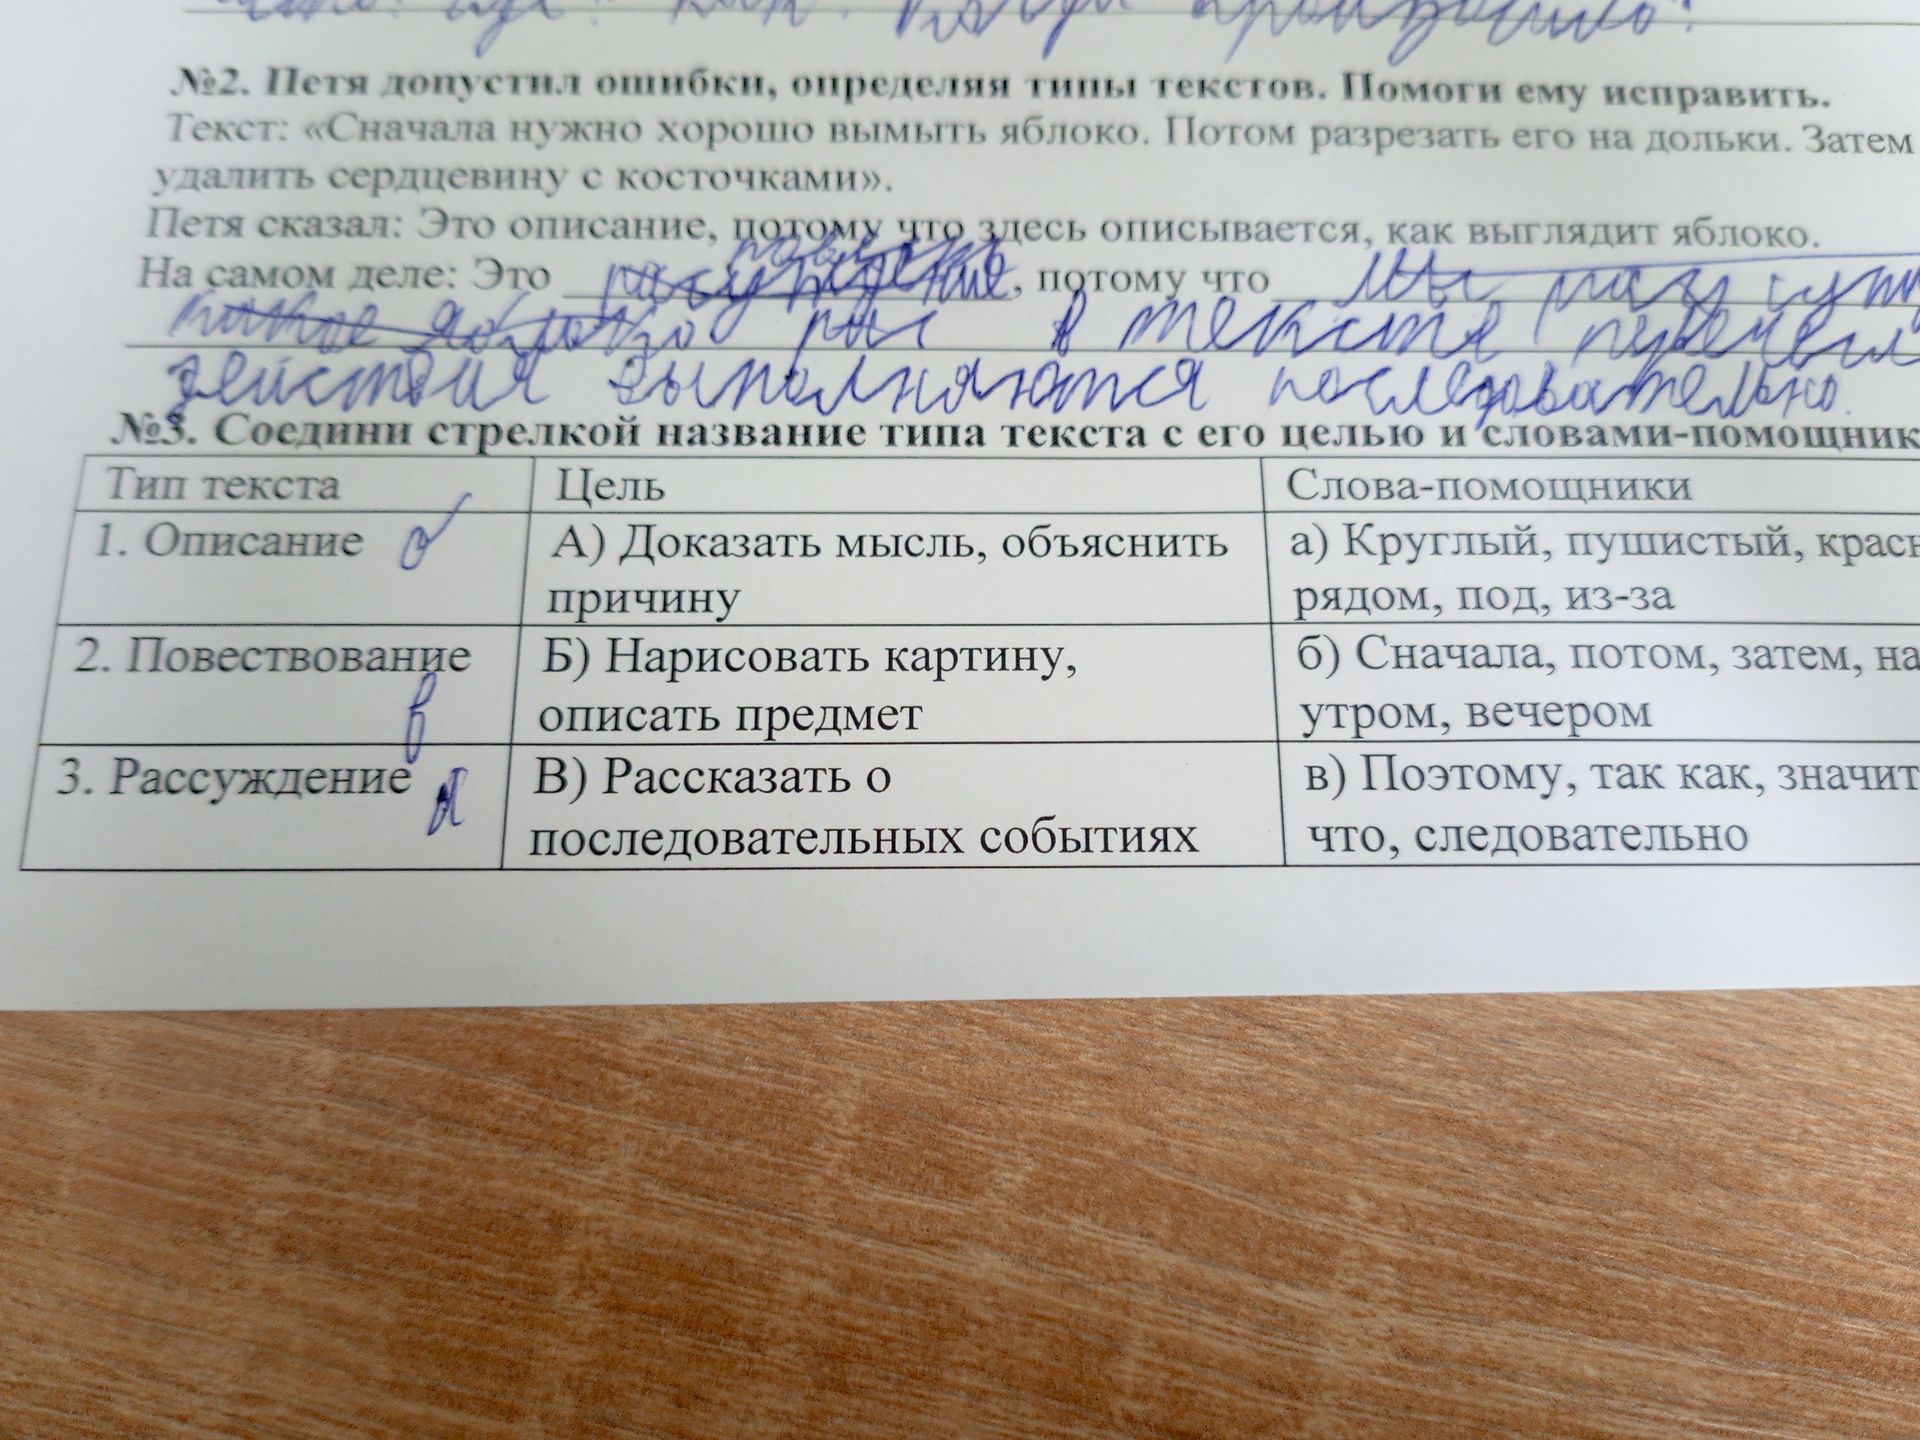 №2. Петя допустил ошибки, определяя типы текстов. Помоги ему исправить.
Текст: «Сначала нужно хорошо вымыть яблоко. Потом разрезать его на дольки. Затем
удалить сердцевину с косточками».
Петя сказал: Это описание, потому что здесь описывается, как выглядит яблоко.
На самом деле: Это рассуждение, потому что мы
в тексте
действия выполняются последовательно.
№3. Соедини стрелкой название типа текста с его целью и словами-помощник
Тип текста Цель Слова-помощники
1. Описание б А) Доказать мысль, объяснить а) Круглый, пушистый, красн
причину рядом, под, из-за
2. Повествование Б) Нарисовать картину, б) Сначала, потом, затем, на
в описать предмет утром, вечером
3. Рассуждение а В) Рассказать о в) Поэтому, так как, значит
последовательных событиях что, следовательно